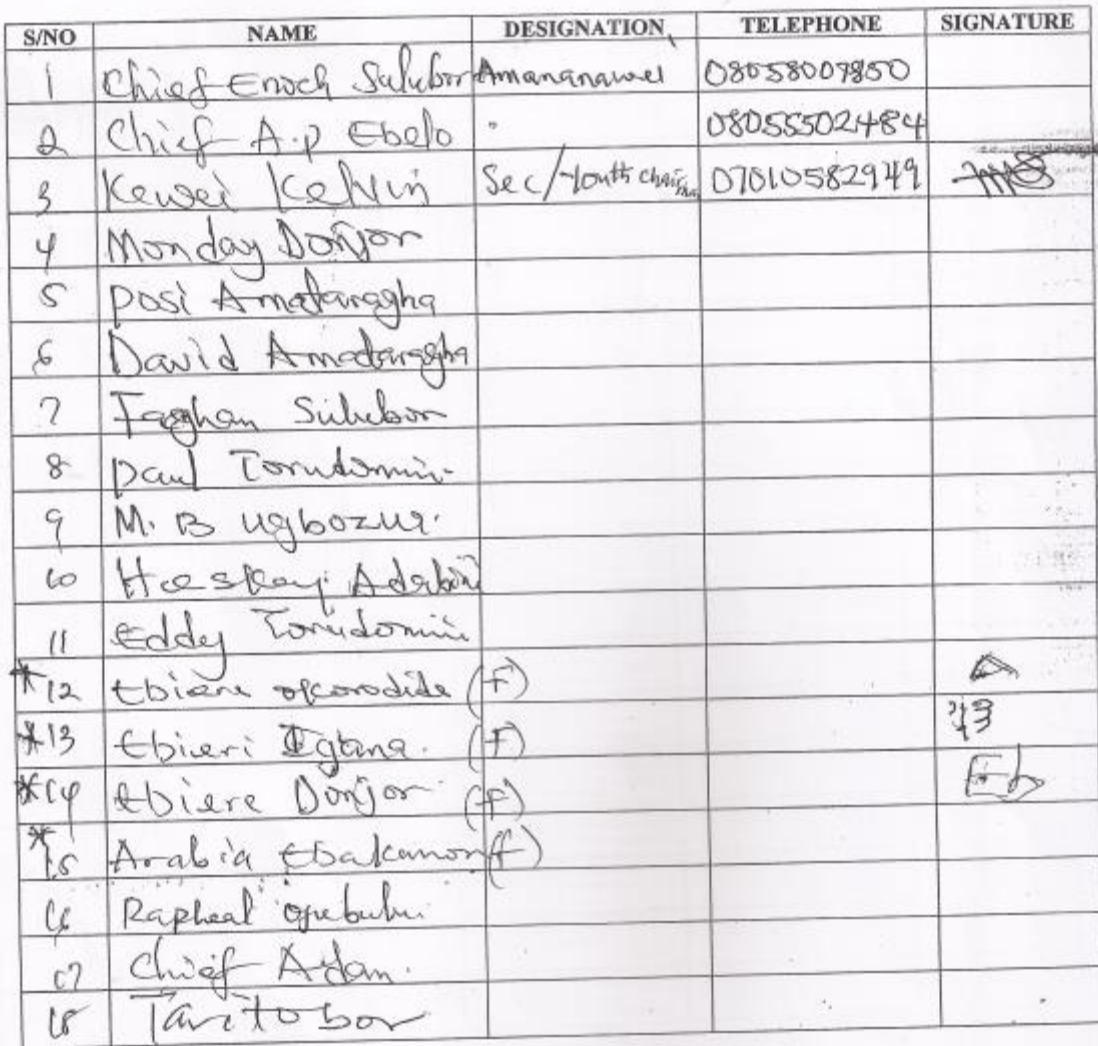 S/NO NAME DESIGNATION TELEPHONE SIGNATURE
1 Chief Enoch Sulubor Amananawei 08058009850
2 Chief A.P Ebelo " 08055502484
3 Kewei Kelvin Sec/Youth chairman 07010582949
4 Monday Donjor
5 Posi Amataragha
6 David Amadaragha
7 Sulubor
8 Paul Torudomini
9 M. B Ugbozui
10
11 Eddy Torudomini
*12 Ebiere (F)
*13 Ebieri (F)
*14 Ebiere Donjor (F) Eb
*15 Arabia Ebakamon (f)
16 Rapheal opubulu
17 Chief Adam.
18 Taritobor